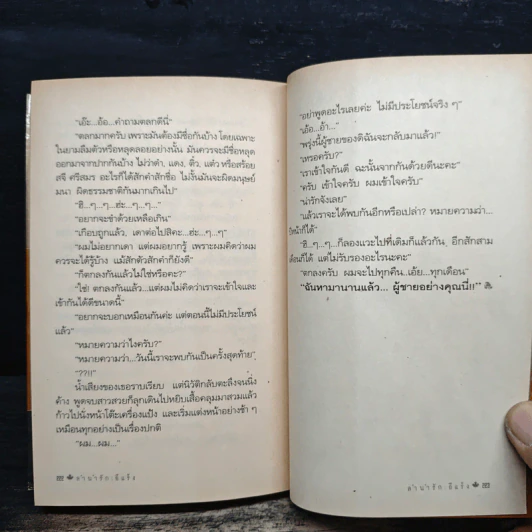 “เอ๊ะ...อ้อ...คำถามตลกดีนี่”
“ตลกมากครับ เพราะมันต้องมีชื่อกันบ้าง โดยเฉพาะ
ในยามลืมตัวหรือหลุดลอยอย่างนั้น มันควรจะมีชื่อหลุด
ออกมาจากปากกันบ้าง ไม่ว่าดำ, แดง, ติ๋ว, แต๋ว หรือสร้อย
สจี ศรีสมร อะไรก็ได้สักคำสักชื่อ ไม่งั้นมันจะผิดมนุษย์
มนา ผิดธรรมชาติกันมากเกินไป”
“ฮิ...ๆ...ๆ...ฮ่ะ...ๆ...ๆ...”
“อยากจะขำด้วยเหลือเกิน”
“เกือบถูกแล้ว, เดาต่อไปสิคะ...ฮ่ะ...ๆ...ๆ”
“ผมไม่อยากเดา แต่ผมอยากรู้ เพราะผมคิดว่าผม
ควรจะได้รู้บ้าง แม้สักตัวสักคำก็ยังดี”
“ก็ตกลงกันแล้วไม่ใช่หรือคะ?”
“ใช่! ตกลงกันแล้ว...แต่ผมไม่คิดว่าเราจะเข้าใจและ
เข้ากันได้ดีขนาดนี้”
“อยากจะบอกเหมือนกันค่ะ แต่ตอนนี้ไม่มีประโยชน์
แล้ว”
“หมายความว่าไงครับ?”
“หมายความว่า...วันนี้เราจะพบกันเป็นครั้งสุดท้าย”
“??!!”
น้ำเสียงของเธอราบเรียบ แต่นิวัติกลับตะลึงจนนิ่ง
ค้าง พูดจบสาวสวยก็ลุกเดินไปหยิบเสื้อคลุมมาสวมแล้ว
ก้าวไปนั่งหน้าโต๊ะเครื่องแป้ง และเริ่มแต่งหน้าอย่างช้า ๆ
เหมือนทุกอย่างเป็นเรื่องปกติ
“ผม...ผม...”
“อย่าพูดอะไรเลยค่ะ ไม่มีประโยชน์จริง ๆ”
“เอ้อ...อ้า...”
“พรุ่งนี้ผู้ชายของดิฉันจะกลับมาแล้ว!”
“เหรอครับ?”
“เราเข้าใจกันดี ฉะนั้นจากกันด้วยดีนะคะ”
“ครับ เข้าใจครับ ผมเข้าใจครับ”
“น่ารักจังเลย”
“แล้วเราจะได้พบกันอีกหรือเปล่า? หมายความว่า...
ปีหน้าก็ได้”
“ฮิ...ๆ...ๆ...ก็ลองแวะไปที่เดิมก็แล้วกัน อีกสักสาม
เดือนก็ได้ แต่ไม่รับรองอะไรนะคะ”
“ตกลงครับ ผมจะไปทุกคืน..เอ๊ย...ทุกเดือน”
“ฉันหามานานแล้ว... ผู้ชายอย่างคุณนี่!!”